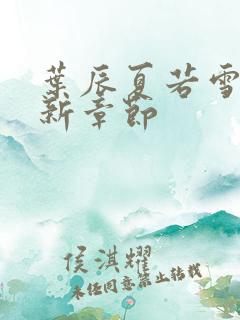 葉辰夏若雪
新章節
侯淇耀
未经同意禁止转载